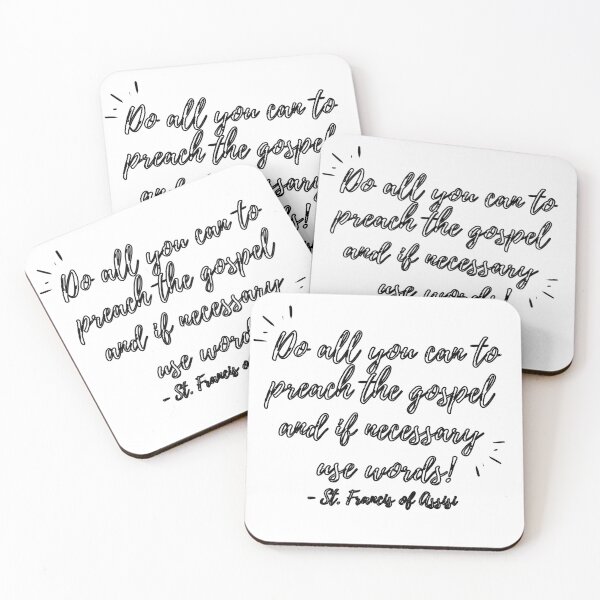 Do all you can to
preach the gospel
and
Do all you can to
preach the gospel
and if necessary
use words!
Do all you can to
preach the gospel
and if necessary
use
- St. Francis
Do all you can to
preach the gospel
and if necessary
use words!
- St. Francis of Assisi